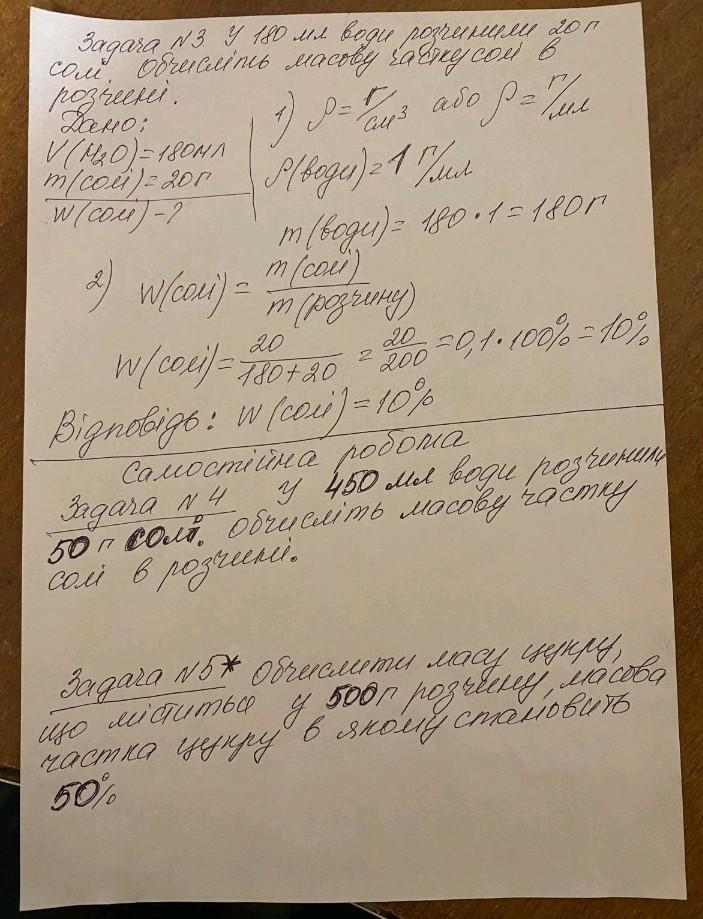 Задача №3 У 180 мл води розчинили 20 г
солі. Обчисліть масову частку солі в
розчині.
Дано:
V(H2O)=180мл
m(солі)=20г
W(солі)-?
1) ρ=г/см³ або ρ=г/мл
ρ(води)=1 г/мл
m(води)=180·1=180г
2) W(солі)= m(солі)/m(розчину)
W(солі)= 20/180+20 = 20/200 =0,1·100%=10%
Відповідь: W(солі)=10%
Самостійна робота
Задача №4 У 450 мл води розчинили
50 г солі. Обчисліть масову частку
солі в розчині.
Задача №5* Обчислити масу цукру,
що міститься у 500г розчину, масова
частка цукру в якому становить
50%